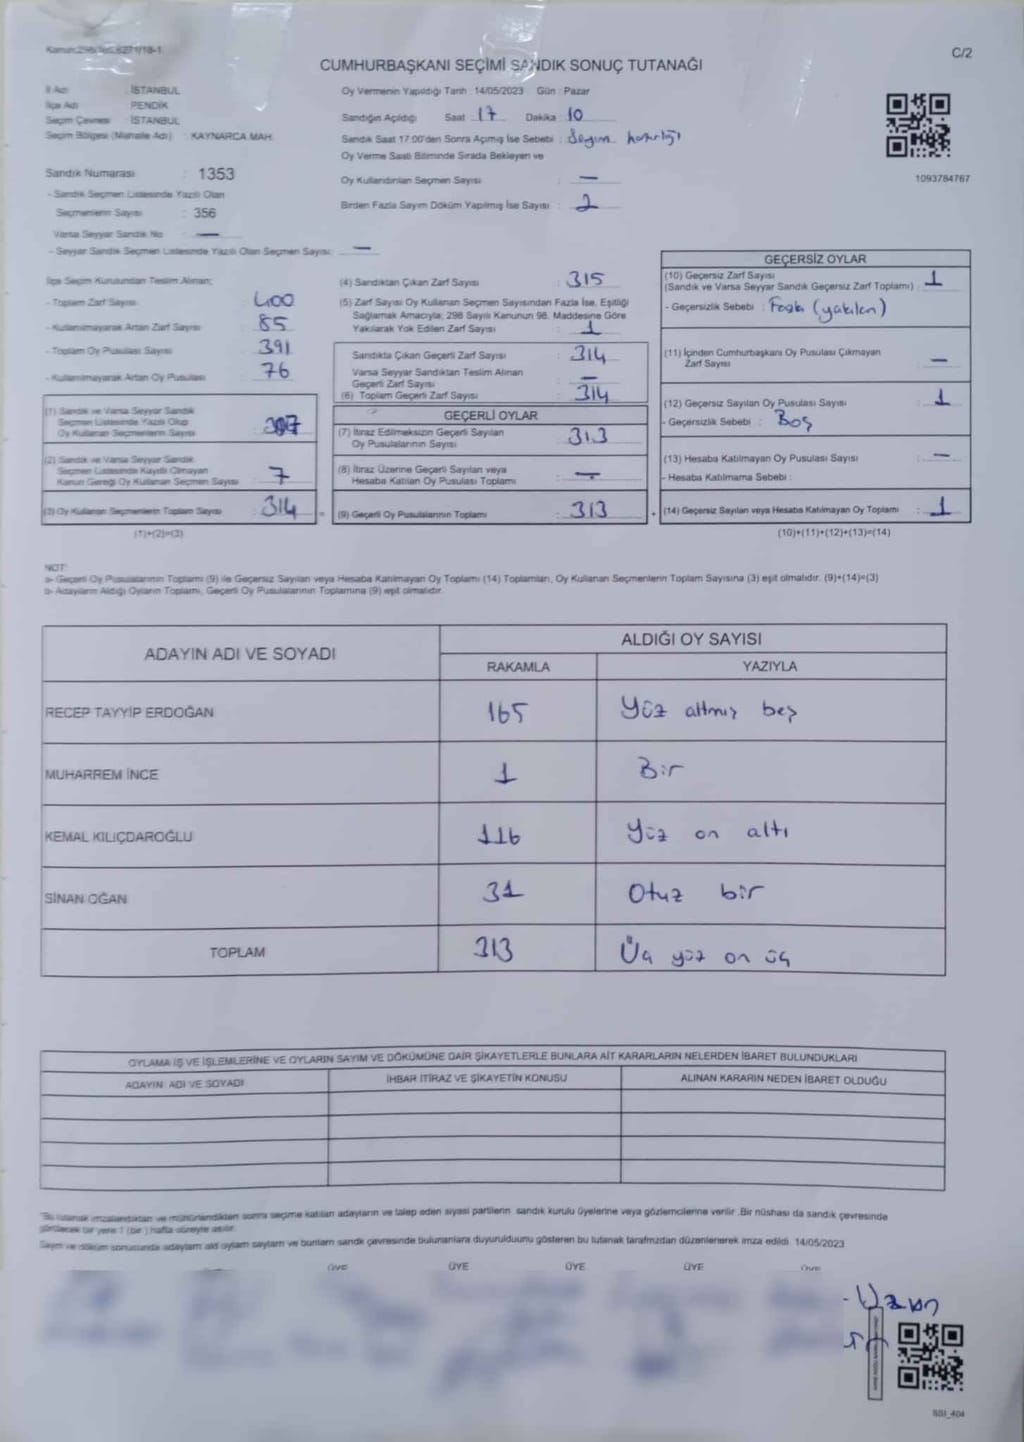 Kanun:298/
C/2
CUMHURBAŞKANI SEÇİMİ SANDIK SONUÇ TUTANAĞI
İl Adı : İSTANBUL
İlçe Adı : PENDİK
Seçim Çevresi : İSTANBUL
Seçim Bölgesi (Mahalle Adı) : KAYNARCA MAH.
Oy Vermenin Yapıldığı Tarih : 14/05/2023 Gün : Pazar
Sandığın Açıldığı Saat : 17 Dakika : 10
Sandık Saat 17:00'den Sonra Açılmış İse Sebebi : Sayım hazırlığı
Oy Verme Saati Bitiminde Sırada Bekleyen ve
Oy Kullandırılan Seçmen Sayısı : —
Birden Fazla Sayım Döküm Yapılmış İse Sayısı : 2
1093784767
Sandık Numarası : 1353
- Sandık Seçmen Listesinde Yazılı Olan
Seçmenlerin Sayısı : 356
Varsa Seyyar Sandık No : —
- Seyyar Sandık Seçmen Listesinde Yazılı Olan Seçmen Sayısı : —
İlçe Seçim Kurulundan Teslim Alınan;
- Toplam Zarf Sayısı : 400
- Kullanılmayarak Artan Zarf Sayısı : 85
- Toplam Oy Pusulası Sayısı : 391
- Kullanılmayarak Artan Oy Pusulası : 76
(1) Sandık ve Varsa Seyyar Sandık
Seçmen Listesinde Yazılı Olup
Oy Kullanan Seçmenlerin Sayısı : 307
(2) Sandık ve Varsa Seyyar Sandık
Seçmen Listesinde Kayıtlı Olmayan
Kanun Gereği Oy Kullanan Seçmen Sayısı : 7
(3) Oy Kullanan Seçmenlerin Toplam Sayısı : 314
(1)+(2)=(3)
(4) Sandıktan Çıkan Zarf Sayısı : 315
(5) Zarf Sayısı Oy Kullanan Seçmen Sayısından Fazla İse, Eşitliği
Sağlamak Amacıyla; 298 Sayılı Kanunun 98. Maddesine Göre
Yakılarak Yok Edilen Zarf Sayısı : 1
Sandıkta Çıkan Geçerli Zarf Sayısı : 314
Varsa Seyyar Sandıktan Teslim Alınan
Geçerli Zarf Sayısı : —
(6) Toplam Geçerli Zarf Sayısı : 314
GEÇERLİ OYLAR
(7) İtiraz Edilmeksizin Geçerli Sayılan
Oy Pusulalarının Sayısı : 313
(8) İtiraz Üzerine Geçerli Sayılan veya
Hesaba Katılan Oy Pusulası Toplamı : —
= (9) Geçerli Oy Pusulalarının Toplamı : 313
GEÇERSİZ OYLAR
(10) Geçersiz Zarf Sayısı
(Sandık ve Varsa Seyyar Sandık Geçersiz Zarf Toplamı) : 1
- Geçersizlik Sebebi : Fazla (yakılan)
(11) İçinden Cumhurbaşkanı Oy Pusulası Çıkmayan
Zarf Sayısı : —
(12) Geçersiz Sayılan Oy Pusulası Sayısı : 1
- Geçersizlik Sebebi : Boş
(13) Hesaba Katılmayan Oy Pusulası Sayısı : —
- Hesaba Katılmama Sebebi :
+ (14) Geçersiz Sayılan veya Hesaba Katılmayan Oy Toplamı : 1
(10)+(11)+(12)+(13)=(14)
NOT:
a- Geçerli Oy Pusulalarının Toplamı (9) ile Geçersiz Sayılan veya Hesaba Katılmayan Oy Toplamı (14) Toplamları, Oy Kullanan Seçmenlerin Toplam Sayısına (3) eşit olmalıdır. (9)+(14)=(3)
b- Adayların Aldığı Oyların Toplamı, Geçerli Oy Pusulalarının Toplamına (9) eşit olmalıdır.
ADAYIN ADI VE SOYADI
ALDIĞI OY SAYISI
RAKAMLA YAZIYLA
RECEP TAYYİP ERDOĞAN 165 Yüz altmış beş
MUHARREM İNCE 1 Bir
KEMAL KILIÇDAROĞLU 116 Yüz on altı
SİNAN OĞAN 31 Otuz bir
TOPLAM 313 Üç yüz on üç
OYLAMA İŞ VE İŞLEMLERİNE VE OYLARIN SAYIM VE DÖKÜMÜNE DAİR ŞİKAYETLERLE BUNLARA AİT KARARLARIN NELERDEN İBARET BULUNDUKLARI
ADAYIN ADI VE SOYADI İHBAR İTİRAZ VE ŞİKAYETİN KONUSU ALINAN KARARIN NEDEN İBARET OLDUĞU
*Bu tutanak imzalandıktan ve mühürlendikten sonra seçime katılan adayların ve talep eden siyasi partilerin sandık kurulu üyelerine veya gözlemcilerine verilir. Bir nüshası da sandık çevresinde
görülecek bir yere 1 (bir) hafta süreyle asılır.
Sayım ve döküm sonusunda
14/05/2023
ÜYE ÜYE ÜYE ÜYE ÜYE